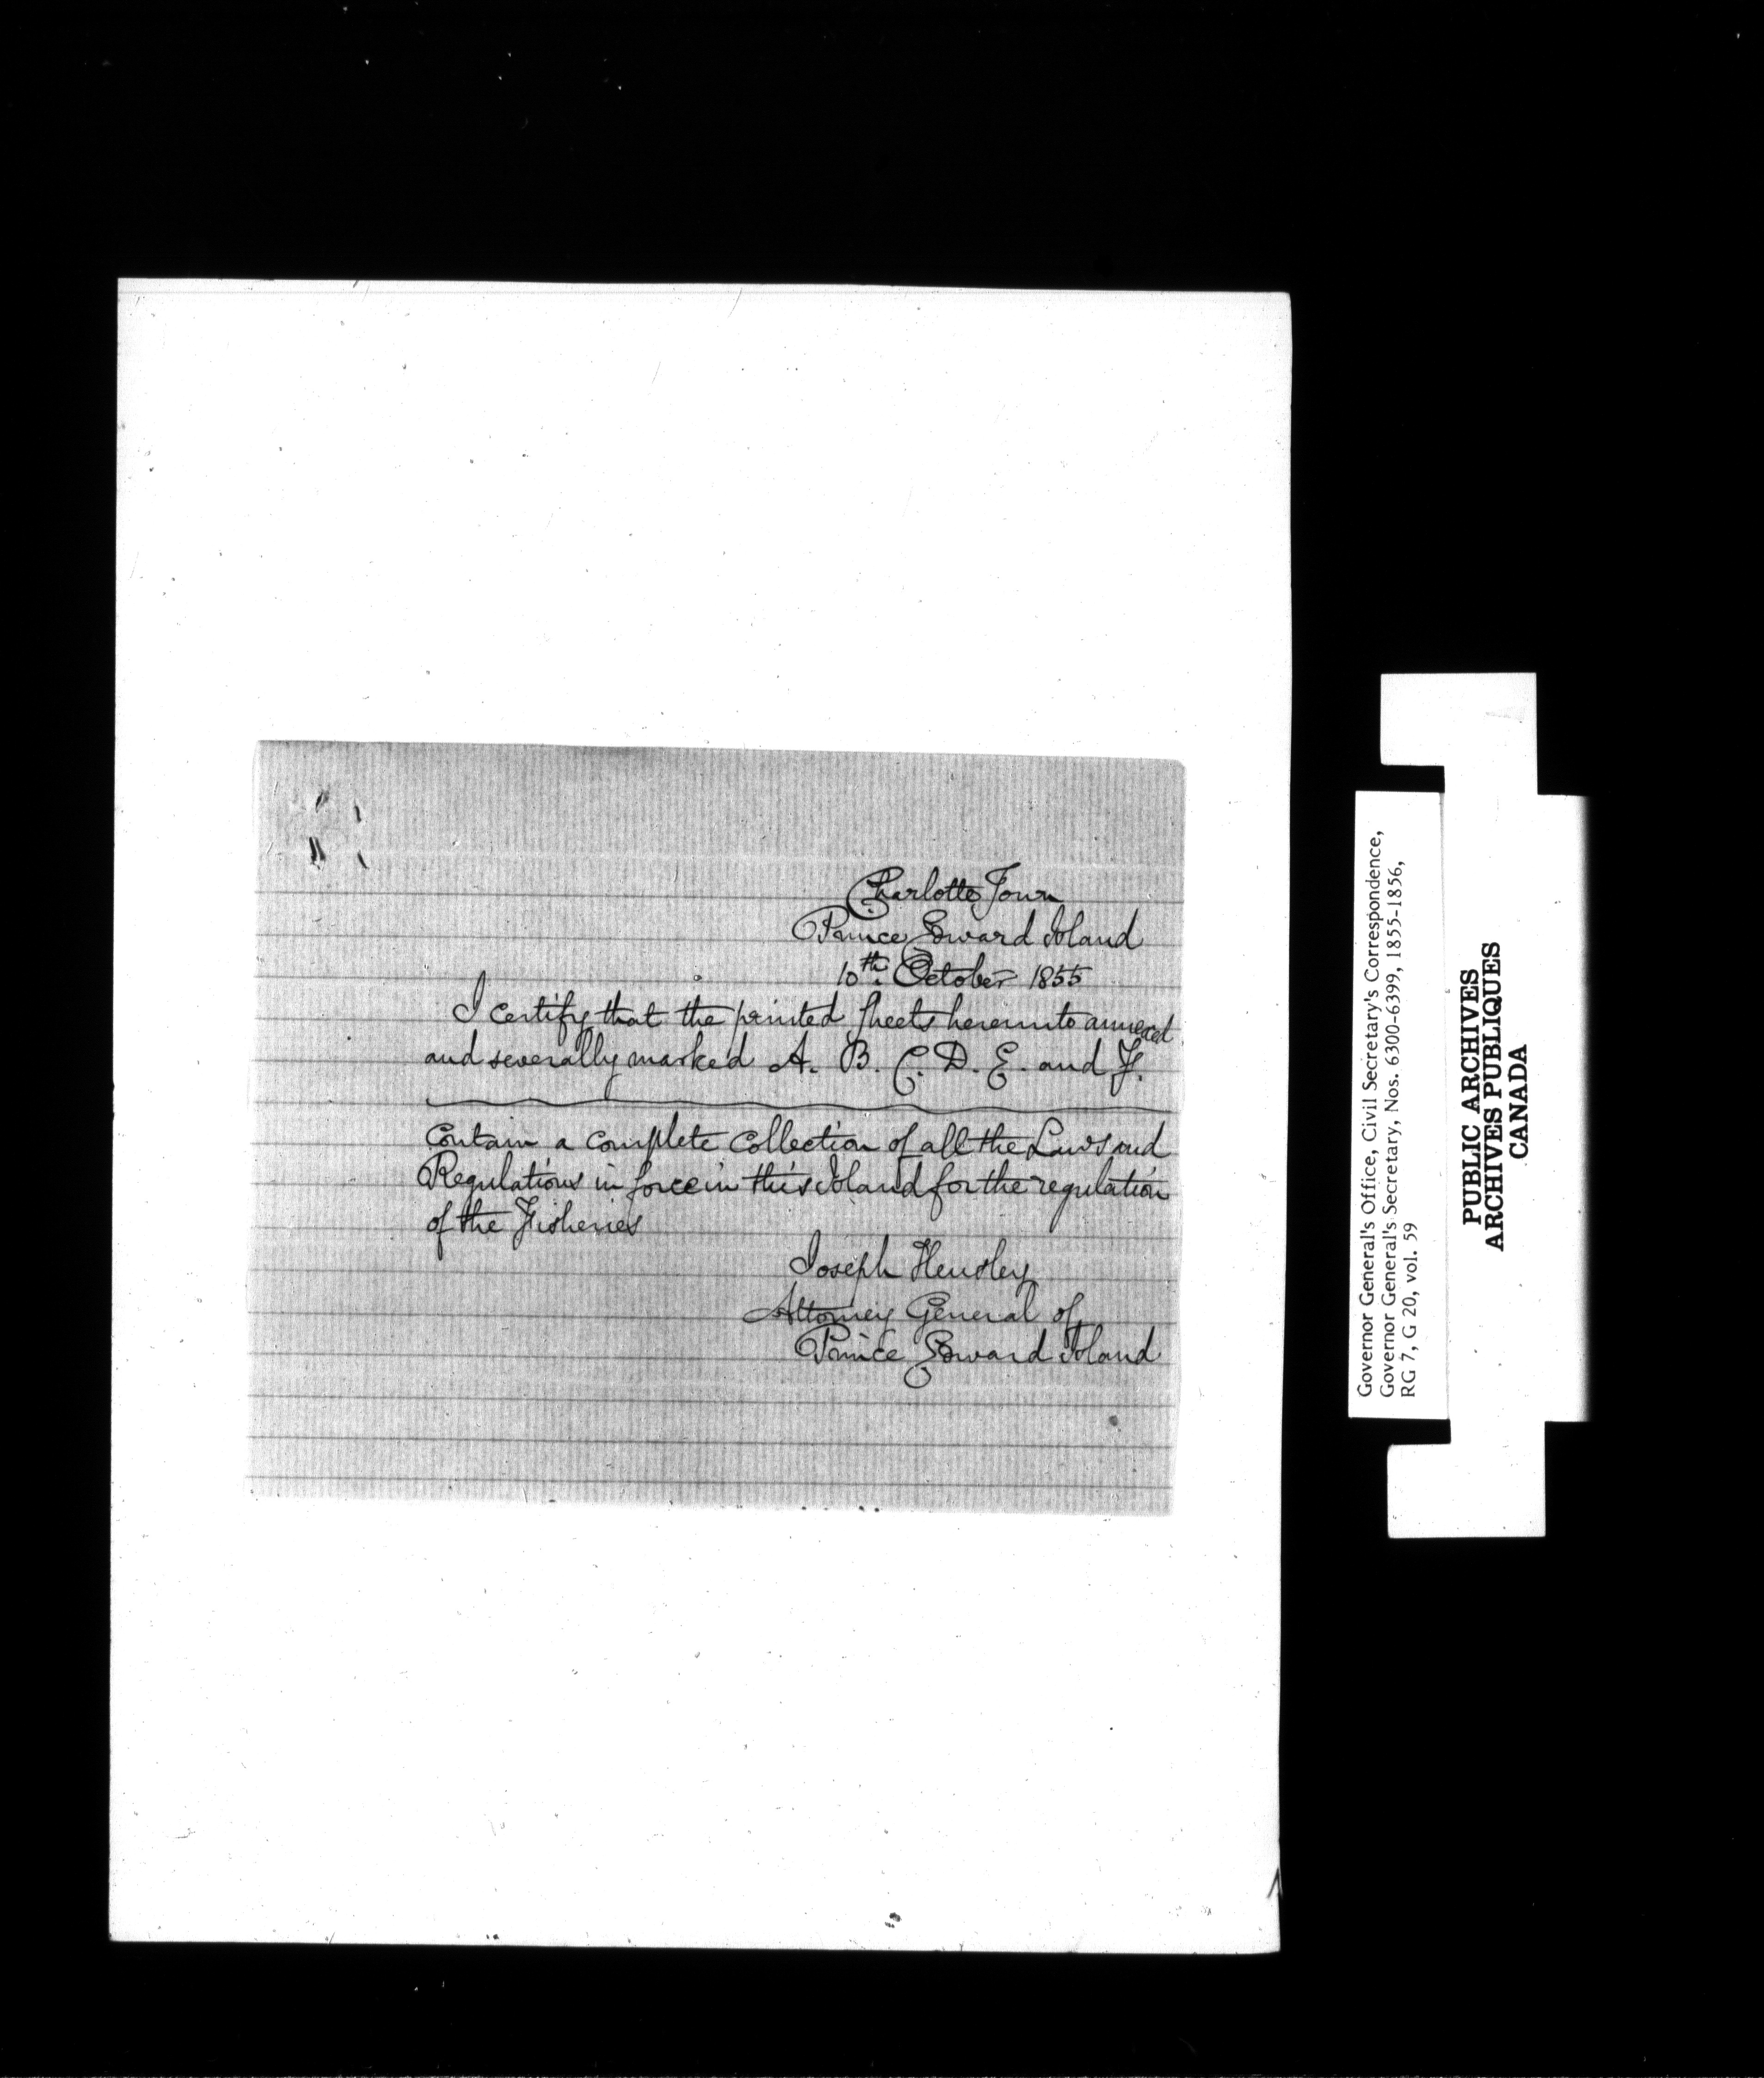 Charlotte Town
Prince Edward Island
10th. October 1855
I certify that the printed sheets hereunto annexed
and severally marked A. B. C. D. E. and F.
Contain a complete Collection of all the Laws and
Regulations in force in this Island for the regulation
of the Fisheries
Joseph Hensley
Attorney General of
Prince Edward Island
Governor General's Office, Civil Secretary's Correspondence,
Governor General's Secretary, Nos. 6300-6399, 1855-1856,
RG 7, G 20, vol. 59
PUBLIC ARCHIVES
ARCHIVES PUBLIQUES
CANADA